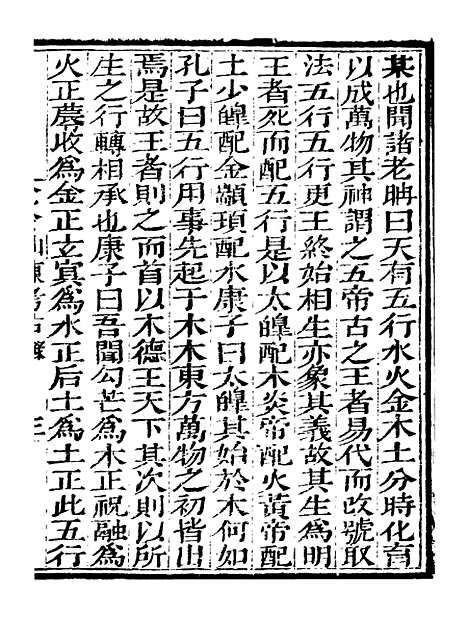 某也聞諸老聃曰天有五行水火金木土分時化育
以成萬物其神謂之五帝古之王者易代而改號取
法五行五行更王終始相生亦象其義故其生爲明
王者死而配五行是以太皥配木炎帝配火黃帝配
土少皥配金顓頊配水康子曰太皥其始於木何如
孔子曰五行用事先起于木木東方萬物之初皆出
焉是故王者則之而首以木德王天下其次則以所
生之行轉相承也康子曰吾聞勾芒爲木正祝融爲
火正蓐收爲金正玄冥爲水正后土爲土正此五行